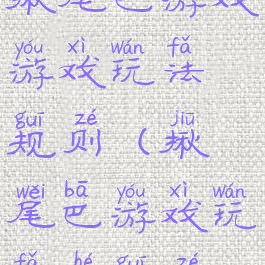 揪尾巴游戏
yóu xì wán fǎ
游戏玩法
guī zé jiū
规则（揪
wěi bā yóu xì wán
尾巴游戏玩
fǎ hé guī zé